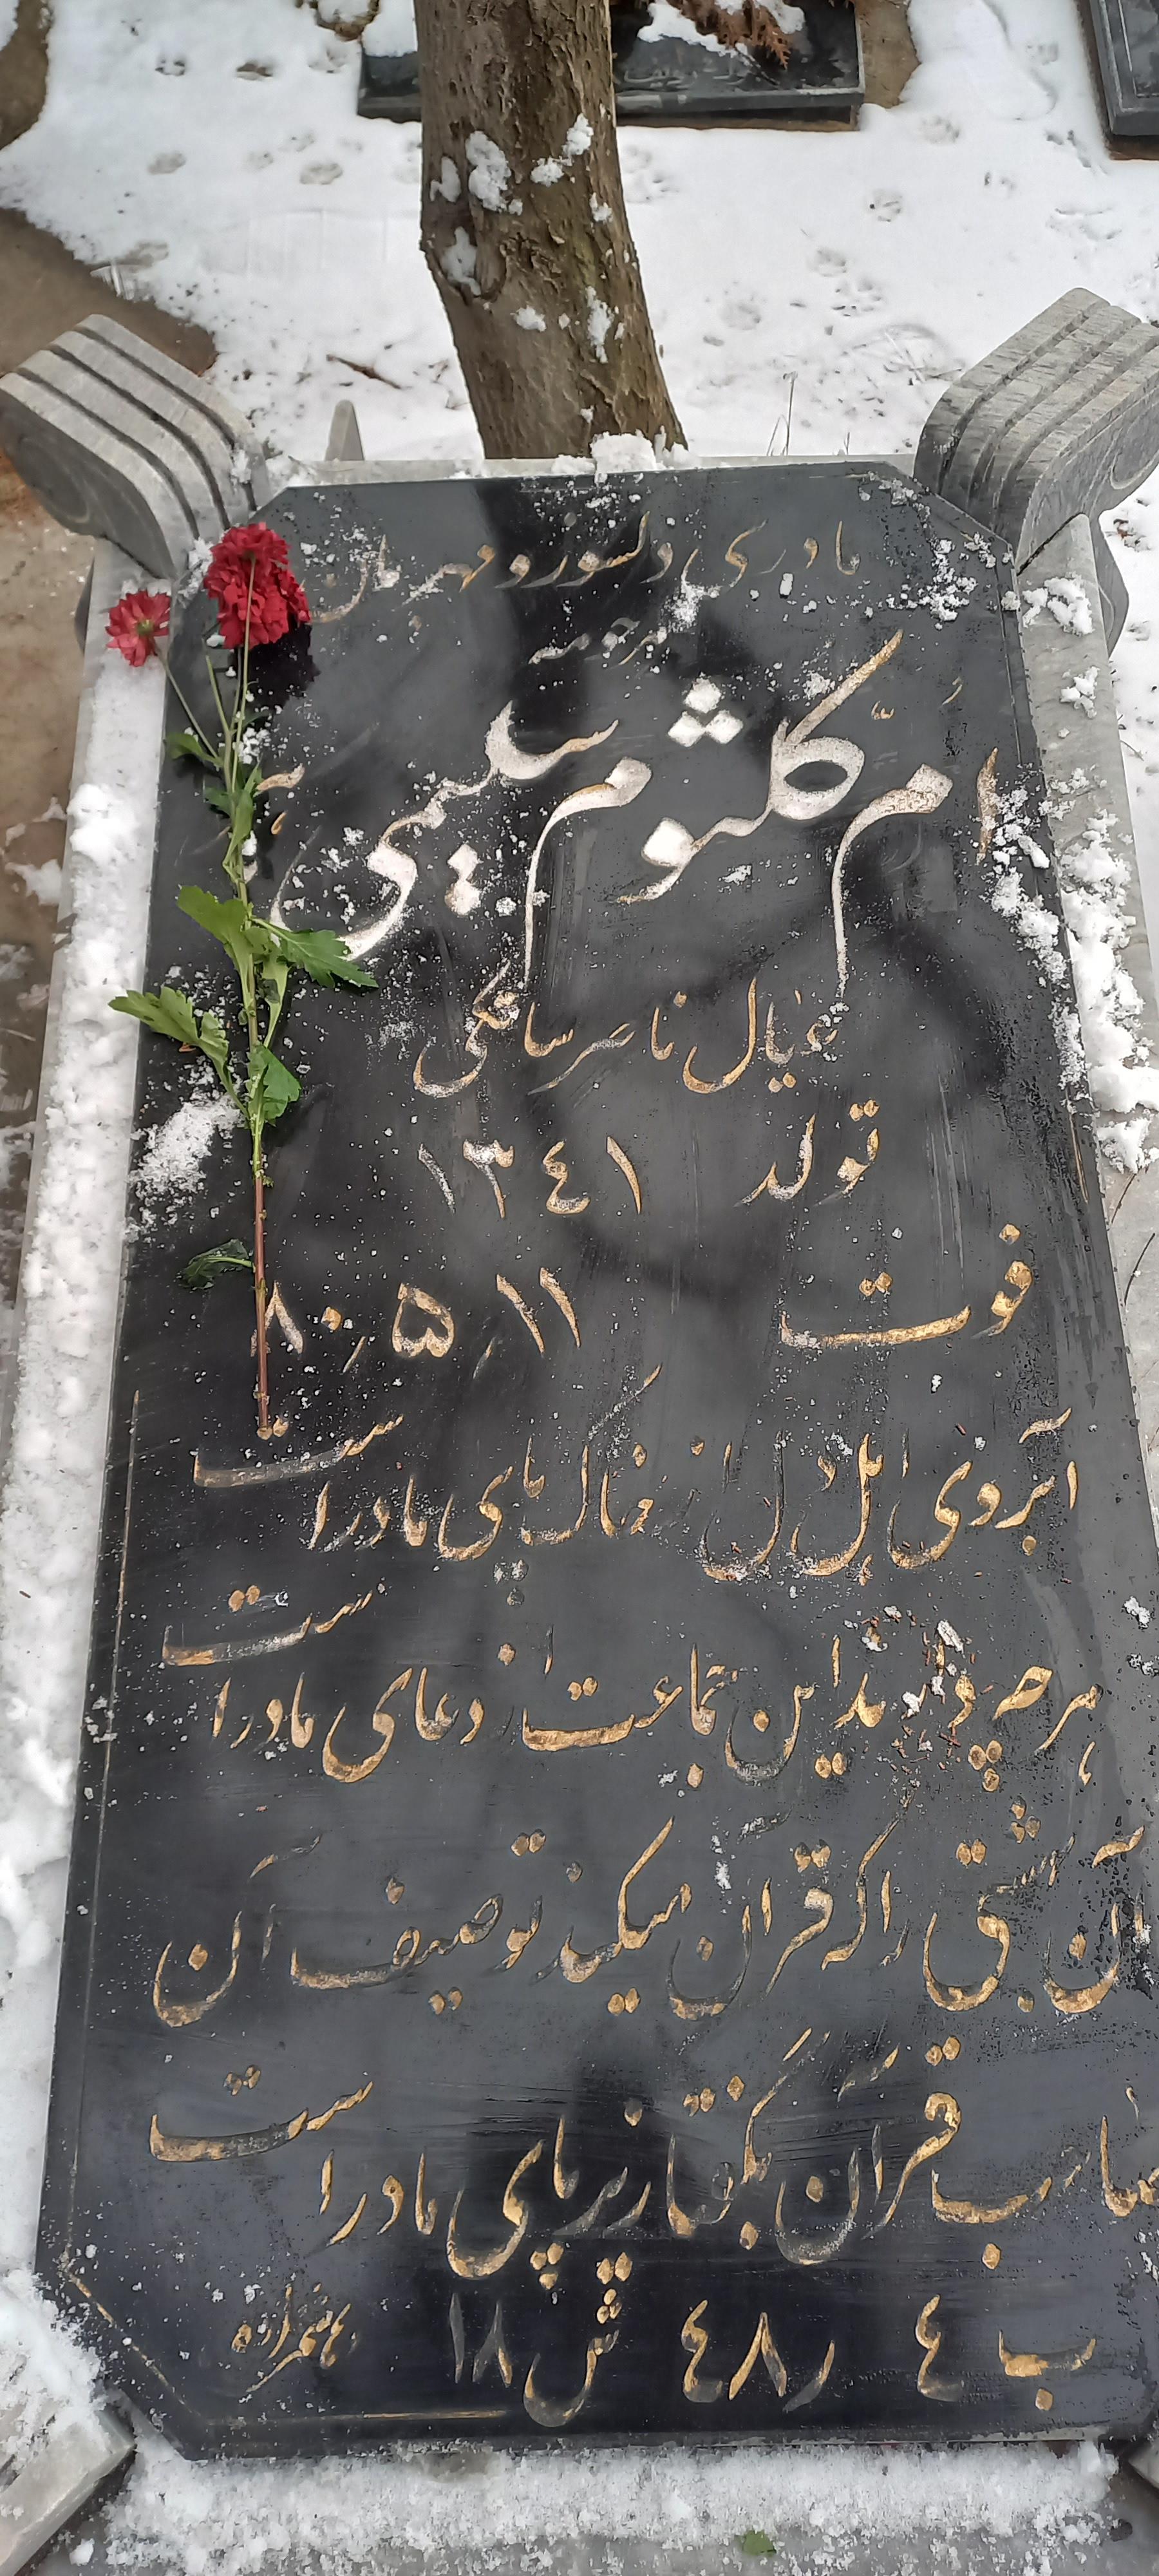 مادری دلسوز و مهربان
مرحومه
اُمّ کلثوم سلیمی
عیال ناصر سالکی
تولد ۱۳۴۱
فوت ۱۱٫۵٫۸۰
آبروی اهل دل از خاک پای مادر است
هر چه دارند این جماعت از دعای مادر است
آن بهشتی را که قرآن میکند توصیف آن
صاحب قرآن بگفتا زیر پای مادر است
ب ۴ ر ۴۸ ش ۱۸